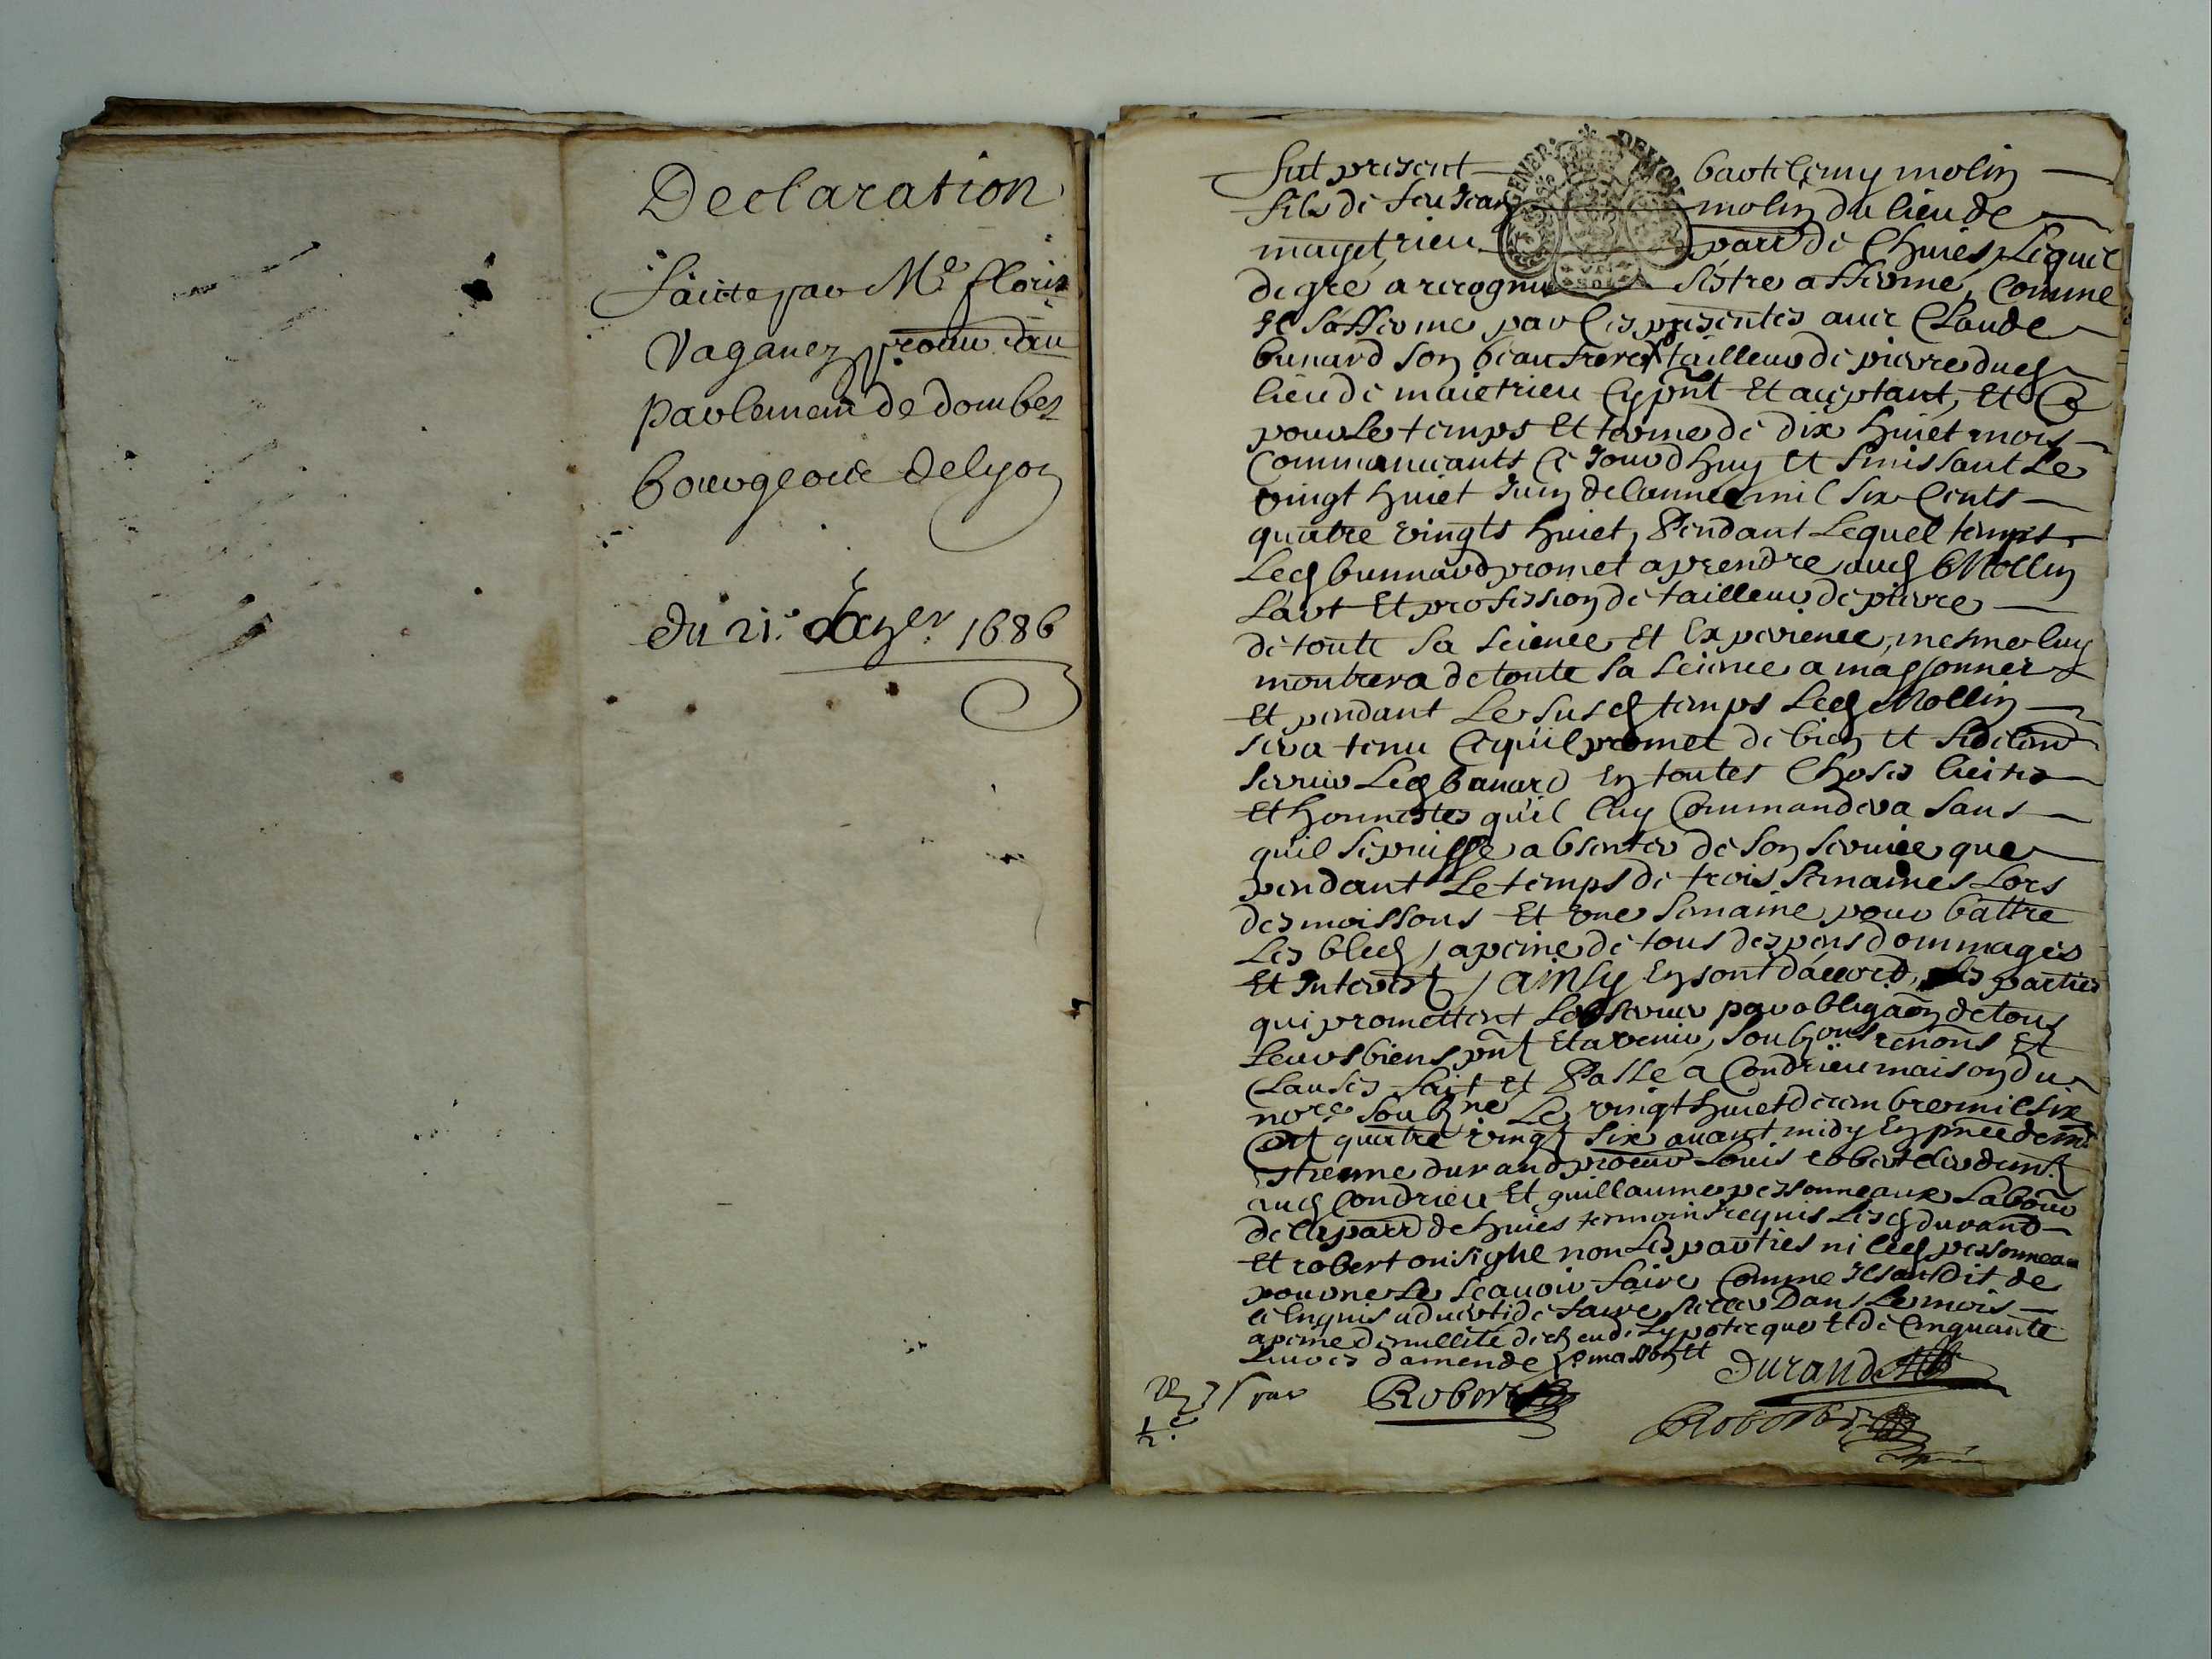 Declaration
faicte par Me floris
Vaganez procur. au
parlement de dombes
bourgeois de lyon
du 21e Xber 1686
fut present bartelemy molin
fils de feu Jean molin du lieu de
mayetrieu parr de Chuies, Lequel
de gre a recognu sestre affermé, Comme
Il safferme par Ces presentes avec Claude
bunard son beaufrere tailleur de pierre dud
lieu de maietrieu Cy pnt Et acceptant, Et Ce
pour Le temps Et terme de dix huict mois
Commancants Ce Jourdhuy Et finissant Le
vingt huict Juin de lannee mil six Cents
quatre vingts huict, Pendant Lequel temps
Led bunnard promet aprendre aud Mollin
Lart Et profission de tailleur de pierre
de toute sa science Et Experience, mesme luy
montrera de toute sa science a massonner
Et pendant Le susd temps Led Mollin
sera tenu Cequil promet de bien Et fidelemt
servir Led banard En toutes Choses licites
Et honnestes quil luy Commandera sans
quil se puisse absenter de son service que
pendant Le temps de trois semaines Lors
des moissons Et vne semaine pour battre
Les bled, a peine de tous despens dommages
Et Interest, Ainsy En sont daccord, Les parties
qui promettent Lobserver par obligaon de tous
Leurs biens pnt Et a venir, soubz renons Et
Clauses fait et Passé a Condrieu maison du
nore soubzne Le vingt huict decembre mil six
Cent quatre vingt six avant midy En pnce de me
Estienne durand procur Louis robert clerc demt
aud Condrieu Et guillaume pessonneaux Labour
de la parr de huies tesmoins requis Lesd durand
Et robert ont signe non Les parties ni led pessonneau
pour ne Le scavoir faire Comme Ils ont dit de
ce Enquis adverti de faire seller Dans Le mois
a peine de nullité deched dhypotecque Et de Cinquante
Livres damende
Durand
R 5s par Robert
Robert
1/2